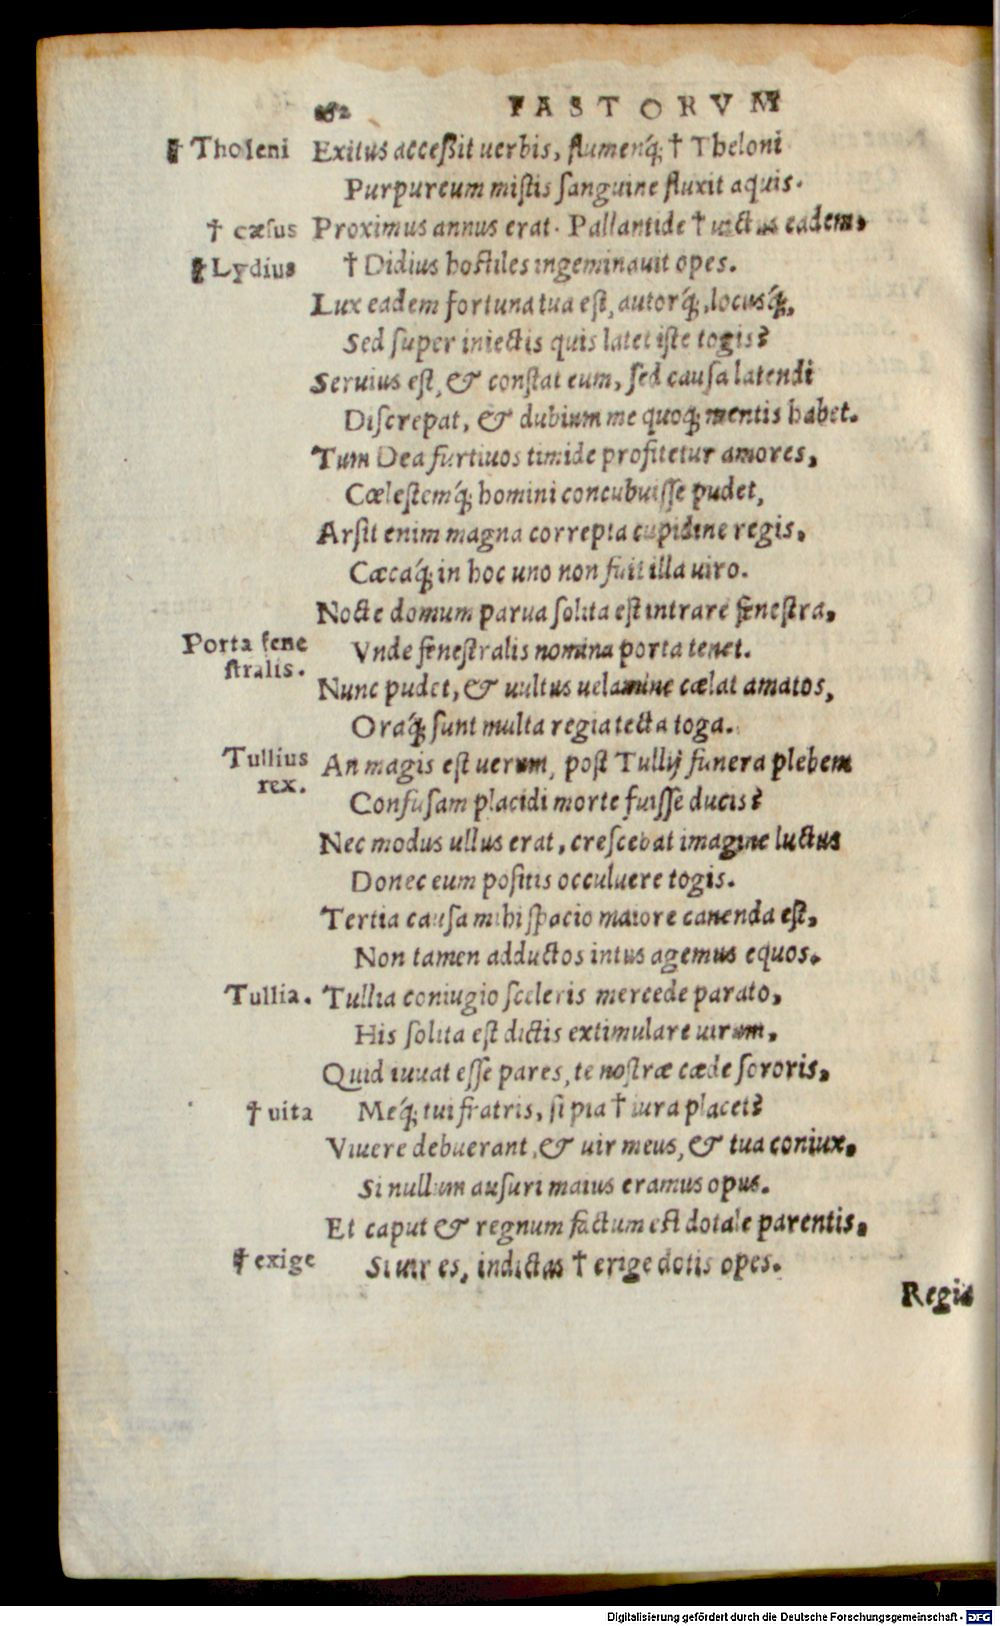 FASTORVM
† Tholeni Exitus acceßit uerbis, flumenq́; † Theloni
Purpureum mistis sanguine fluxit aquis.
† cæsus Proximus annus erat. Pallantide † uictus eadem,
† Lydius † Didius hostiles ingeminauit opes.
Lux eadem fortuna tua est, autorq́;, locusq́;,
Sed super iniectis quis latet iste togis?
Seruius est, & constat eum, sed causa latendi
Discrepat, & dubium me quoq; mentis habet.
Tum Dea furtiuos timide profitetur amores,
Cœlestemq́; homini concubuisse pudet,
Arsit enim magna correpta cupidine regis,
Cæcaq́; in hoc uno non fuit illa uiro.
Nocte domum parua solita est intrare fenestra,
Porta fene Vnde fenestralis nomina porta tenet.
stralis.
Nunc pudet, & uultus uelamine cælat amatos,
Oraq́; sunt multa regia tecta toga.
Tullius An magis est uerum, post Tullij funera plebem
rex.
Confusam placidi morte fuisse ducis?
Nec modus ullus erat, crescebat imagine luctus
Donec eum positis occuluere togis.
Tertia causa mihi spacio maiore canenda est,
Non tamen adductos intus agemus equos.
Tullia. Tullia coniugio sceleris mercede parato,
His solita est dictis extimulare uirum,
Quid iuuat esse pares, te nostræ cæde sororis,
† uita Meq́; tui fratris, si pia † iura placet?
Viuere debuerant, & uir meus, & tua coniux,
Si nullum ausuri maius eramus opus.
Et caput & regnum factum est dotale parentis,
† exige Si uir es, indictas † erige dotis opes.
Regia
Digitalisierung gefördert durch die Deutsche Forschungsgemeinschaft - DFG